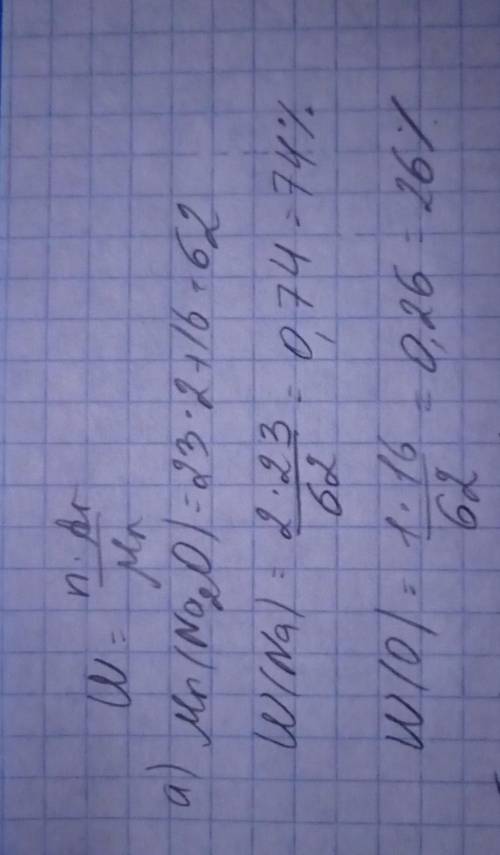 W = n · Ar / Mr
а) Mr(Na₂O) = 23 · 2 + 16 = 62
W(Na) = 2 · 23 / 62 = 0,74 = 74%
W(O) = 1 · 16 / 62 = 0,26 = 26%